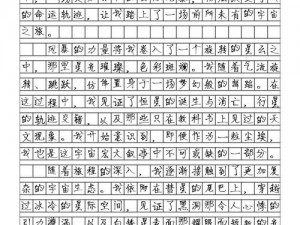 的命运轨迹，让我踏上了一场前所未有的宇宙
之旅。
风暴的力量将我卷入了一个旋转的星云之
中，那里星光璀璨，色彩斑斓。我随着气流旋
转、跳跃，仿佛置身于一场梦幻般的舞蹈。在
这过程中，我见证了恒星的诞生与消亡，行星
的轨迹交错，以及那些只在教科书上见过的天
文现象。我开始意识到，即使作为一粒尘埃，
我也是这宇宙宏大叙事中不可或缺的一部分。
随着旅程的深入，我逐渐接触到了更加复
杂的宇宙生态。我依附在彗星的尾巴上，穿越
过冰冷的星际空间，见证了黑洞那令人心悸的
引力漩涡，以及白矮星表面